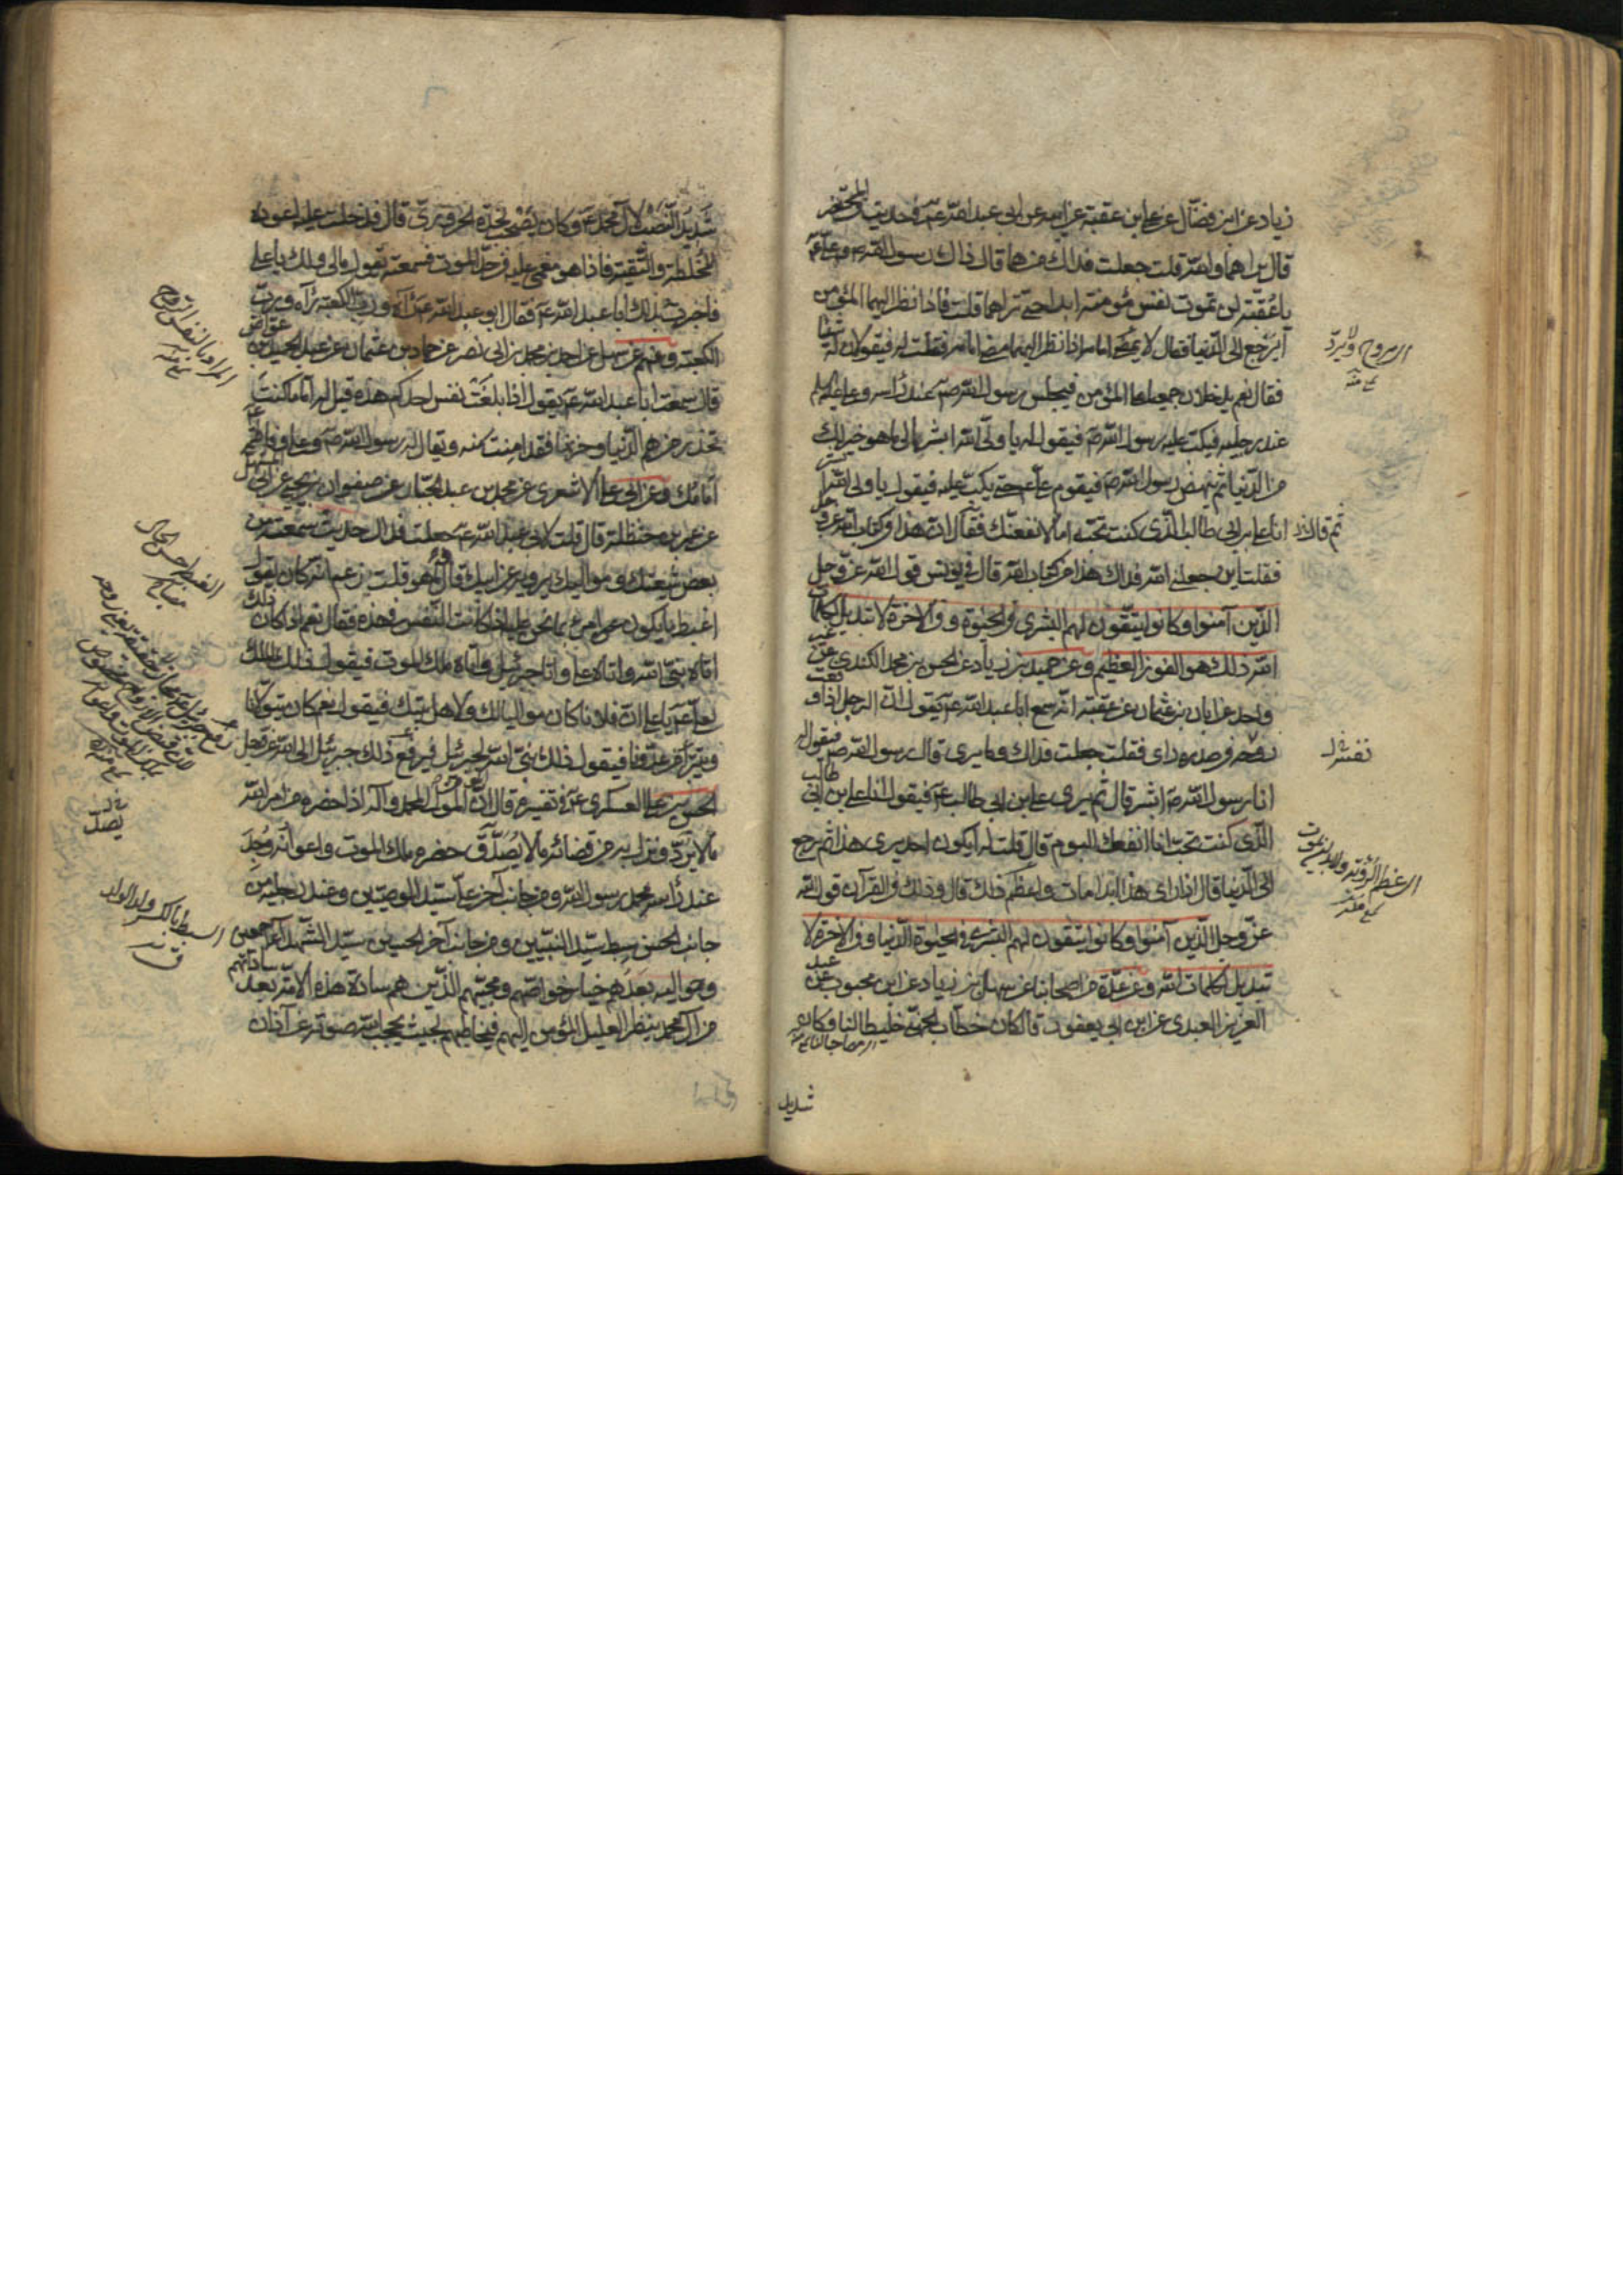 زياد عن ابن فضّال عن علي بن عقبة عن ابيه عن ابي عبد الله عم في حديث المحتضر
قال يراهما والله قلت جعلت فداك من هما قال ذاك رسول الله ص وعلي عم
يا عقبة لن تموت نفس مؤمنة ابدا حتى تراهما قلت فاذا نظر اليهما المؤمن
أيرجع الى الدنيا فقال لا يمضي امامه اذا نظر اليهما مضى امامه فقلت له فيقولان له شيئا
فقال نعم يدخلان جميعا على المؤمن فيجلس رسول الله ص عند رأسه وعلي عليه السلم
عند رجليه فيكب عليه رسول الله ص فيقول له يا ولي الله ابشر انا لى ما هو خير لك
من الدنيا ثم ينهض رسول الله ص فيقوم علي عم حتى يكب عليه فيقول يا ولي الله ابشر
انا علي بن ابي طالب الذي كنت تحبه اما لانفعنك ثم قال ان هذا في كتاب الله عز وجل
فقلت اين جعلني الله فداك هذا من كتاب الله قال في يونس قول الله عز وجل
الذين آمنوا وكانوا يتقون لهم البشرى في الحيوة وفي الاخرة لا تبديل لكلمات
الله ذلك هو الفوز العظيم وعن حميد بن زياد عن الحسن بن محمد الكندي عن غير
واحد عن ابان بن عثمان عن عقبة انه سمع ابا عبد الله عم يقول ان الرجل اذا وقعت
روحه في صدره راى فقلت جعلت فداك وما يرى قال رسول الله ص فيقول
انا رسول الله ص ابشر قال ثم يرى علي بن ابي طالب عم فيقول انا علي بن ابي طالب
الذي كنت تحب انا انفعك اليوم قال قلت له أيكون احد يرى هذا ثم يرجع
الى الدنيا قال اذا راى هذا ابدا مات واعظم ذلك قال وذلك في القرآن قول الله
عز وجل الذين آمنوا وكانوا يتقون لهم البشرى في الحيوة الدنيا وفي الاخرة لا
تبديل لكلمات الله وعن عدة من اصحابنا عن سهل بن زياد عن ابن محبوب عن عبد
العزيز العبدي عن ابن ابي يعفور قال كان خطاب الجهني خليطا لنا وكان
اي مصاحبا لنا
شديد
اي يروح ولا يرد
نفسه خ ل
شديد النصب لآل محمد عم وكان يصحب نجدة الحرورى قال فدخلت عليه اعوده
للخلطة والتقية فاذا هو مغمى عليه في حد الموت فسمعته يقول مالي ولك يا علي
فاخبرت بذلك ابا عبد الله عم فقال ابو عبد الله عم رآه ورب الكعبة رآه ورب
الكعبة وعنهم عن سهل عن احمد بن محمد بن ابي نصر عن حماد بن عثمان عن عبد الحميد بن عواض
قال سمعت ابا عبد الله عم يقول اذا بلغت نفس احدكم هذه قيل له اما ما كنت
تحذر من هم الدنيا وحزنها فقد امنت منه ويقال له رسول الله ص وعلي وفاطمة عم
أمامك وعن ابي علي الاشعري عن محمد بن عبد الجبار عن صفوان بن يحيى عن ابي المستهل
عن محمد بن حنظلة قال قلت لابي عبد الله عم جعلت فداك حديث سمعته من
بعض شيعتك ومواليك يرويه عن ابيك قال وما هو قلت زعم انه كان يقول
اغبط ما يكون امرئ بما نحن عليه اذا كانت النفس في هذه فقال نعم اذا كان ذلك
اتاه نبي الله واتاه علي واتاه جبرئيل واتاه ملك الموت فيقول ذلك الملك
لعلي عم يا علي ان فلانا كان مواليا لك ولاهل بيتك فيقول نعم كان يتولانا
ويتبرأ من عدونا فيقول ذلك نبي الله لجبرئيل فيرفع ذلك جبرئيل الى الله عز وجل
الحسن بن علي العسكري عم في تفسيره قال ان المؤمن الموالي لمحمد وآله اذا حضره من امر الله
ما لا يرد ونزل به من قضائه ما لا يصد حضره ملك الموت واعوانه وجد
عند رأسه محمد رسول الله ومن جانب آخر عليا سيد الوصيين وعند رجليه من
جانب الحسن سبط سيد النبيين ومن جانب آخر الحسين سيد الشهداء اجمعين
وحواليه بعدهم خيار خواصهم ومحبيهم الذين هم سادة هذه الامة بعد ساداتهم
من آل محمد ينظر العليل المؤمن اليهم فيخاطبهم بحيث يحجب الله صوته عن آذان
المراد بالنفس الروح
الغبطة حسن الحال
يصد خ ل
السبط بالكسر ولد الولد